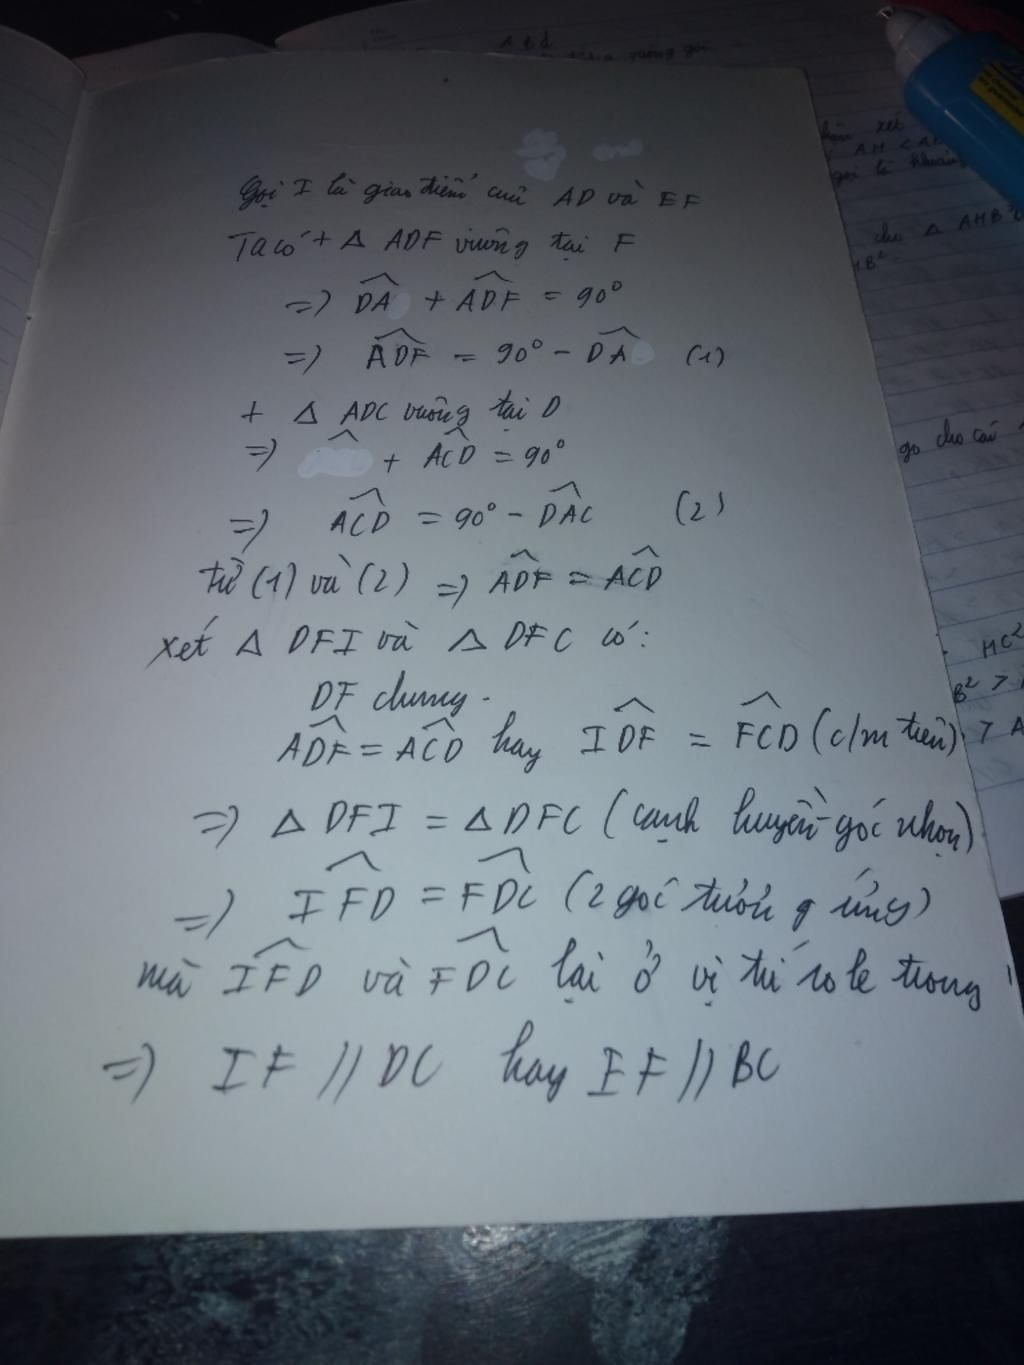 A & d
vuông góc
Gọi I là giao điểm cuả AD và EF
Ta có + Δ ADF vuông tại F
=) DA + ADF = 90°
=) ADF = 90° - DA (1)
+ Δ ADC vuông tại D
=) + ACD = 90°
=) ACD = 90° - DAC (2)
từ (1) và (2) =) ADF = ACD
xét Δ DFI và Δ DFC có:
DF chung.
ADF = ACD hay IDF = FCD (c/m trên)
=) Δ DFI = Δ DFC (cạnh huyền-góc nhọn)
=) IFD = FDC (2 góc tương ứng)
mà IFD và FDC lại ở vị trí so le trong
=) IF // DC hay EF // BC
xét
AH < AB
gọi là khoảng
cho Δ AHB
HB².
go cho cái
HC²
B² >
> A